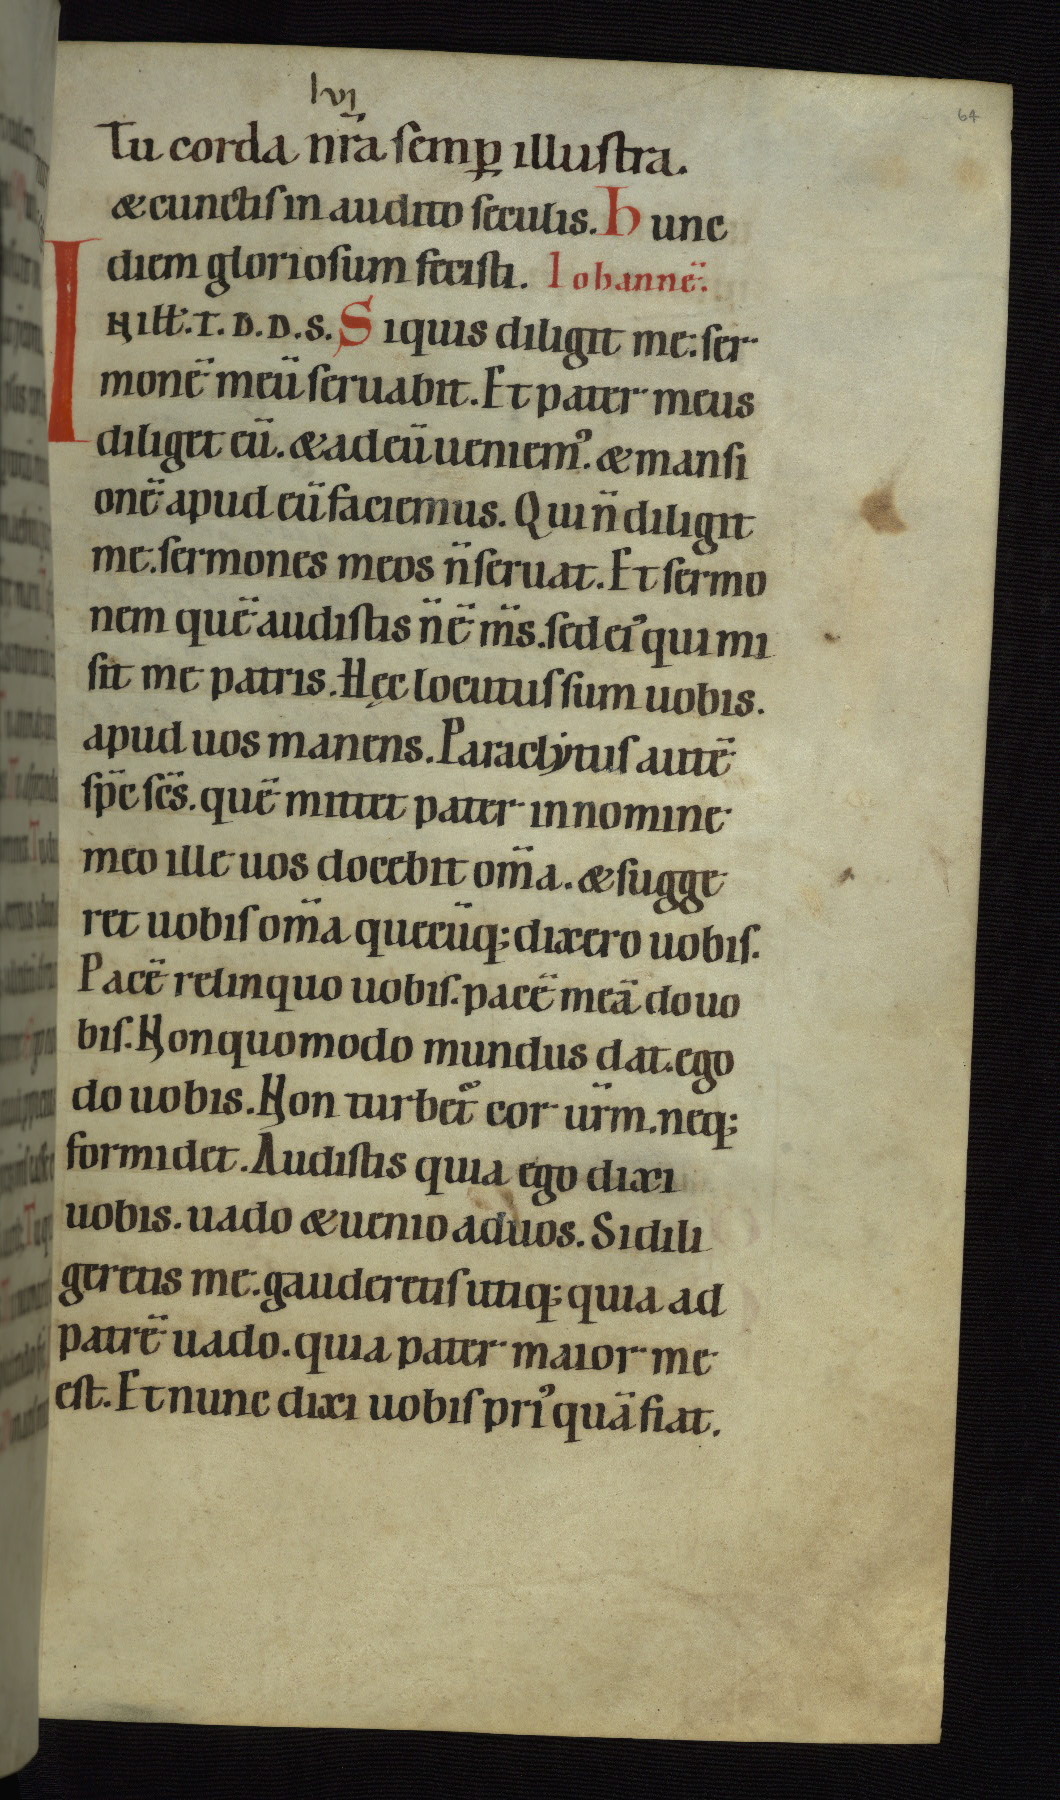 lvi
64
Tu corda nr̄a semp̱ illustra.
& cunctis in audito seculis. Hunc
diem gloriosum fecisti. Iohannē.
IN ill̄.T.D.D.S. Siquis diligit me: ser
monē meū seruabit. Et pater meus
diliget eū. & ad eū ueniem᾽. & mansi
onē apud eū faciemus. Qui n̄ diligit
me. sermones meos n̄ seruat. Et sermo
nem quē audistis n̄ ē m̄s. sed ei᾽ qui mi
sit me patris. Hęc locutus sum uobis.
apud uos manens. Paraclytus autē
sp̄c sc̄s. quē mittet pater in nomine
meo ille uos docebit om̄a. & sugge
ret uobis om̄a quecūq; dixero uobis.
Pacē relinquo uobis. pacē meā do uo
bis. Non quomodo mundus dat. ego
do uobis. Non turbet᾽ cor ur̄m. neq;
formidet. Audistis quia ego dixi
uobis. uado & uenio ad uos. Si dili
geretis me. gauderetis utiq; quia ad
patrē uado. quia pater maior me
est. Et nunc dixi uobis pri᾽ quā fiat.